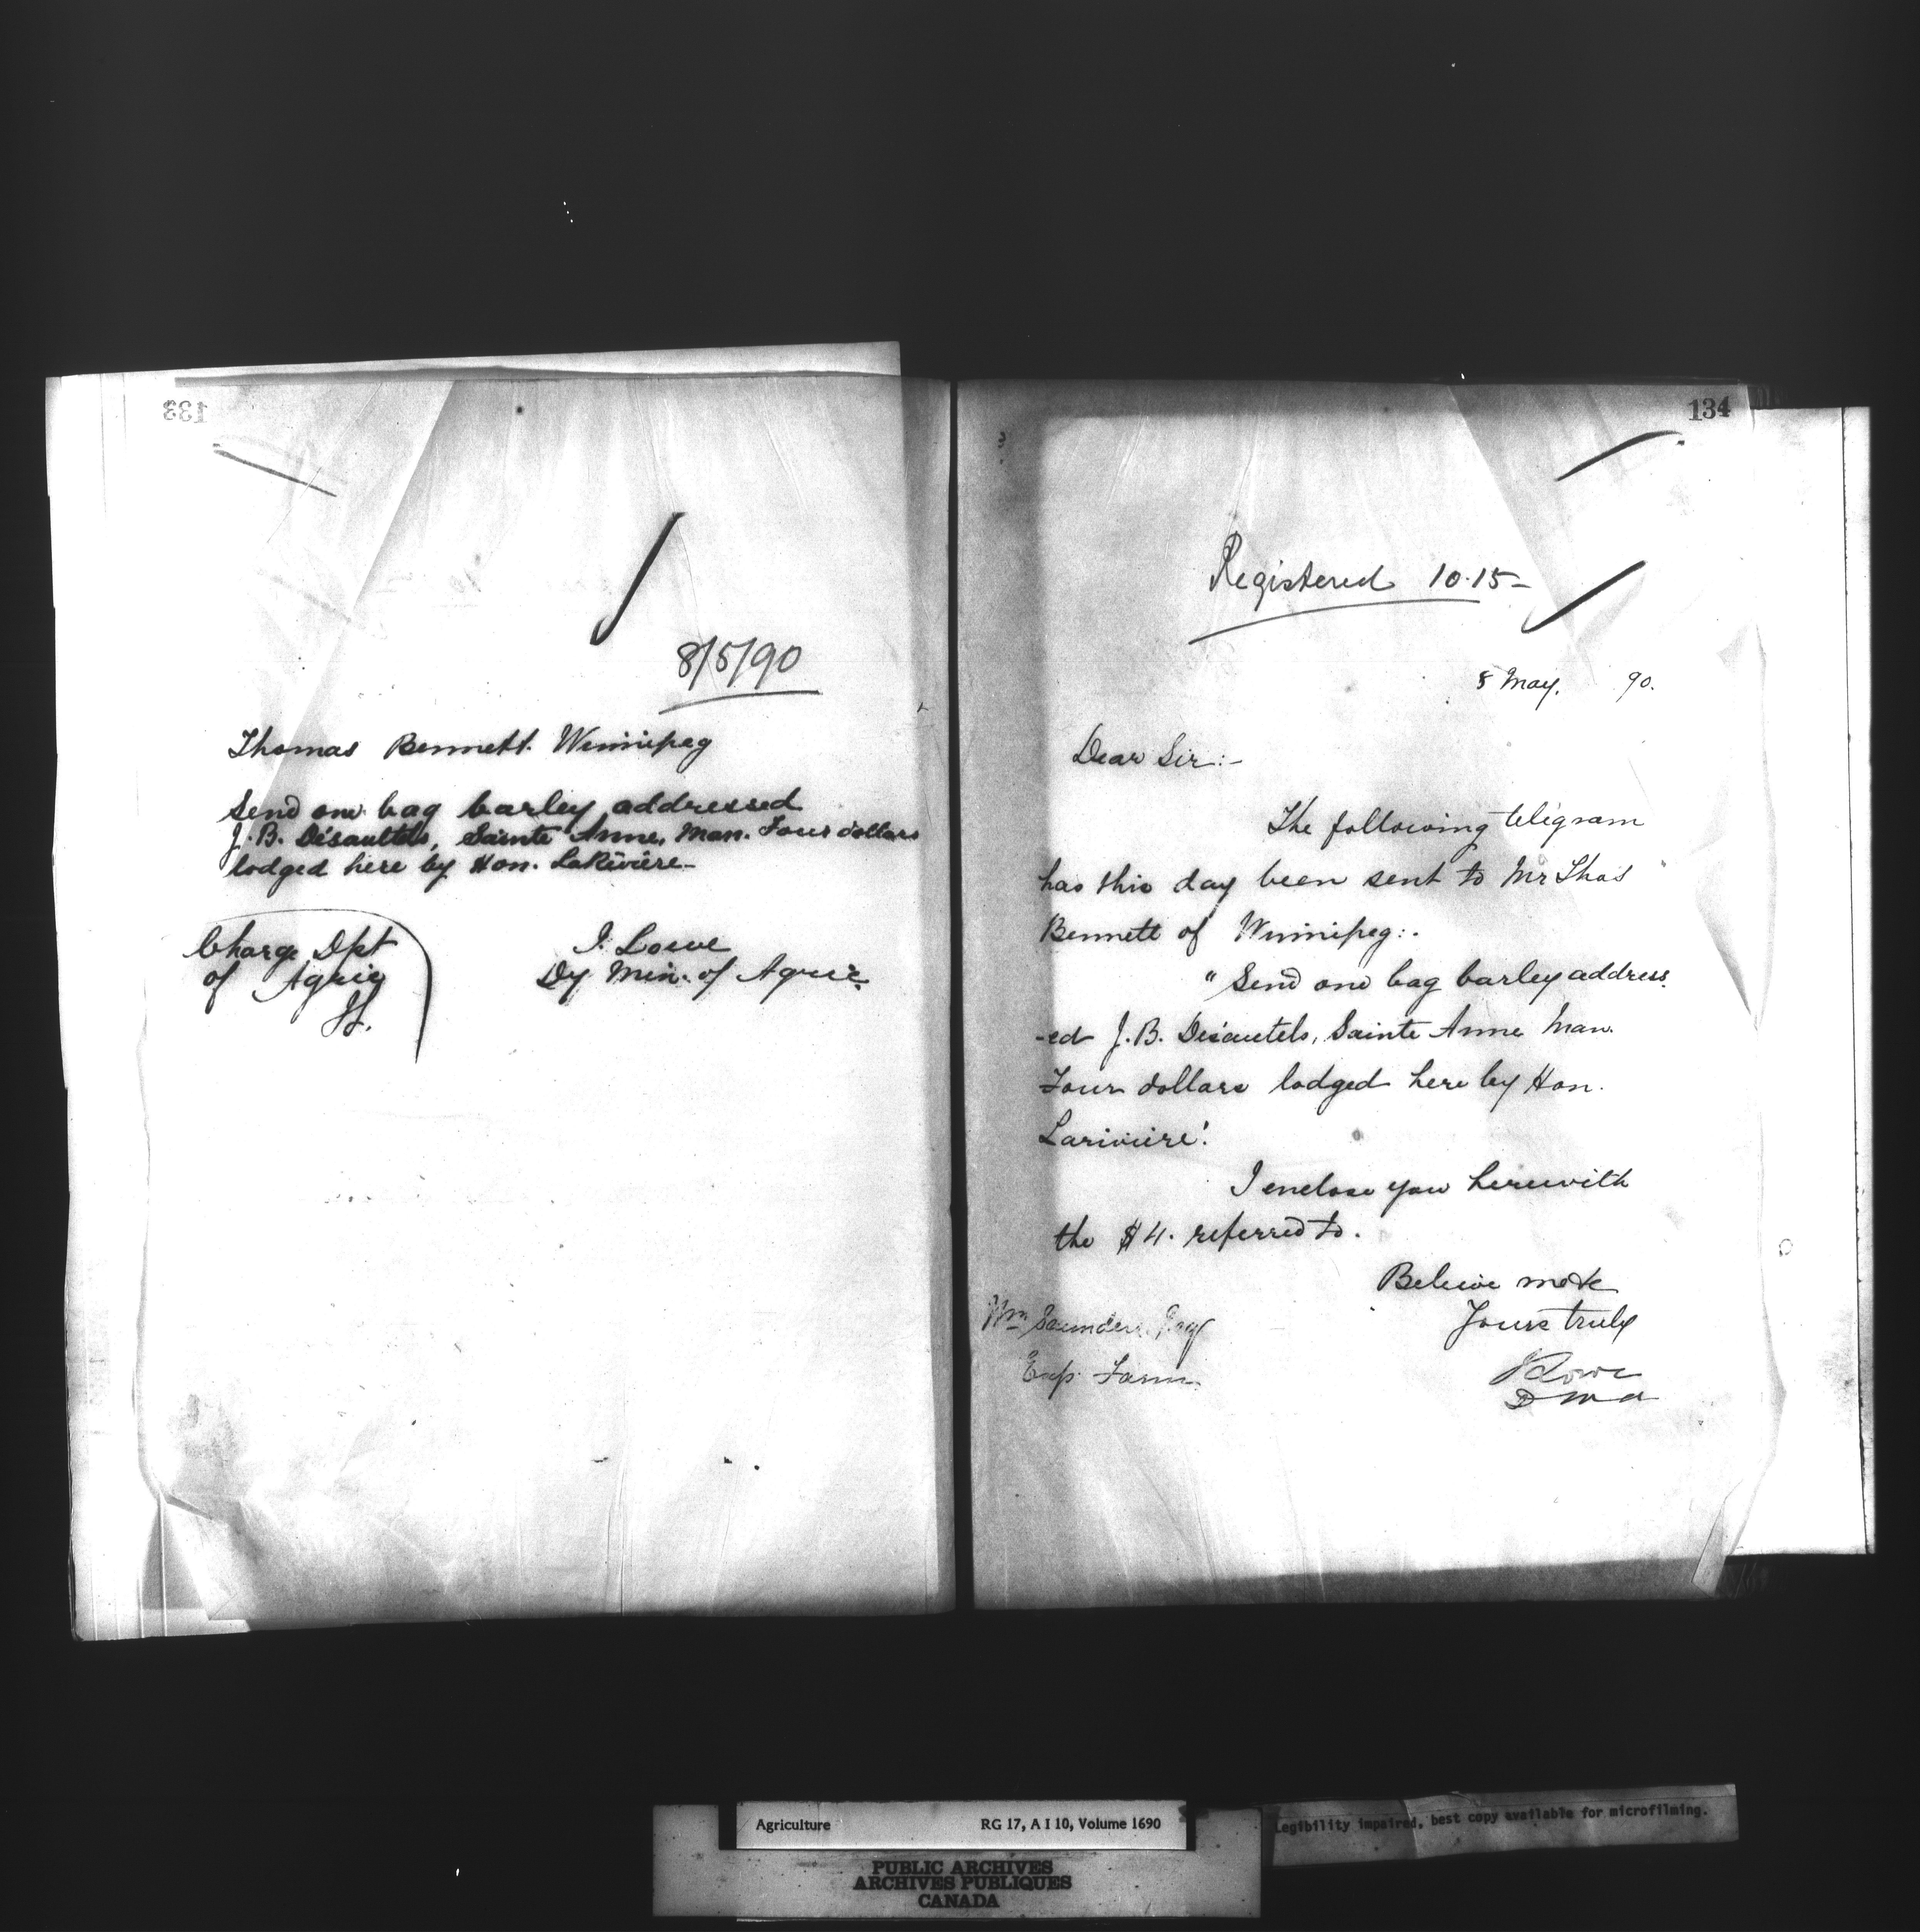 133
8/5/90
Thomas Bennett. Winnipeg
Send one bag barley addressed
J. B. Désautels, Sainte Anne, Man. Four dollars
lodged here by Hon. LaRivière.
Charge Dpt
of Agric
JL.
J. Lowe
Dy Min. of Agric.
134
Registered 10.15
8 May. 90.
Dear Sir:-
The following telegram
has this day been sent to Mr Thos
Bennett of Winnipeg:-
"Send one bag barley address
-ed J. B. Désautels, Sainte Anne Man.
Four dollars lodged here by Hon.
Lariviere."
I enclose you herewith
the $4. referred to.
Believe me
Yours truly
J Lowe
D M A
Wm Saunders Esq
Exp. Farm.
Agriculture RG 17, A I 10, Volume 1690
Legibility impaired, best copy available for microfilming.
PUBLIC ARCHIVES
ARCHIVES PUBLIQUES
CANADA